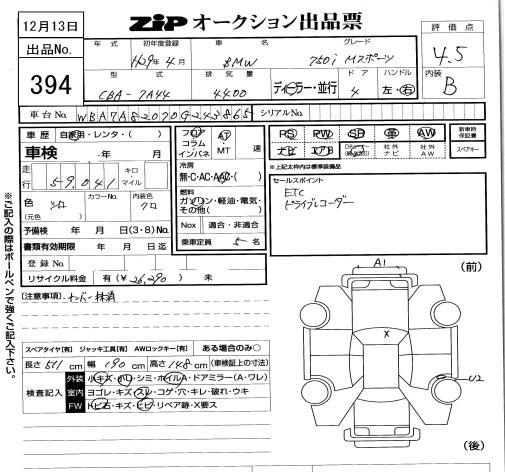 12月13日
ZIP オークション出品票
評価点
4.5
内装
B
出品No.
394
年式 初年度登録 車名 グレード
H29年4月 BMW 750i Mスポーツ
型式 排気量 ドア ハンドル
CBA-7A44 4400 ディーラー・並行 4 左・右
車台No. WBA7A82070G243865 シリアルNo.
車歴 自家用・レンタ・( )
車検 年 月
走行 59,041 キロ マイル
色 (元色) シロ カラーNo. 内装色 クロ
予備検 年 月 日(3・8)No.
書類有効期限 年 月 日迄
登録No.
リサイクル料金 有(¥26,290) 未
フロア コラム インパネ
AT MT 速
冷房
無・C・AC・AAC・( )
燃料
ガソリン・軽油・電気・その他( )
Nox 適合・非適合
乗車定員 5名
PS PW SR 革 AW
ナビ エアB 社外ナビ 社外AW
新車時保証書
スペアキー
※上記太枠内は標準装備品
セールスポイント
ETC
ドライブレコーダー
※ご記入の際はボールペンで強くご記入下さい。
[注意事項]
スペアタイヤ[有] ジャッキ工具[有] AWロックキー[有] ある場合のみ○
長さ 511cm 幅 190cm 高さ 148cm (車検証上の寸法)
検査記入
外装 小キズ・小ワ・シミ・ホイルA・ドアミラー(A・ワレ)
室内 ヨゴレ・キズ・スレ・コゲ・穴・キレ・破れ・ウキ
FW トビ石・キズ・ヒビ・リペア跡・X要ス
A1
(前)
X
U2
(後)